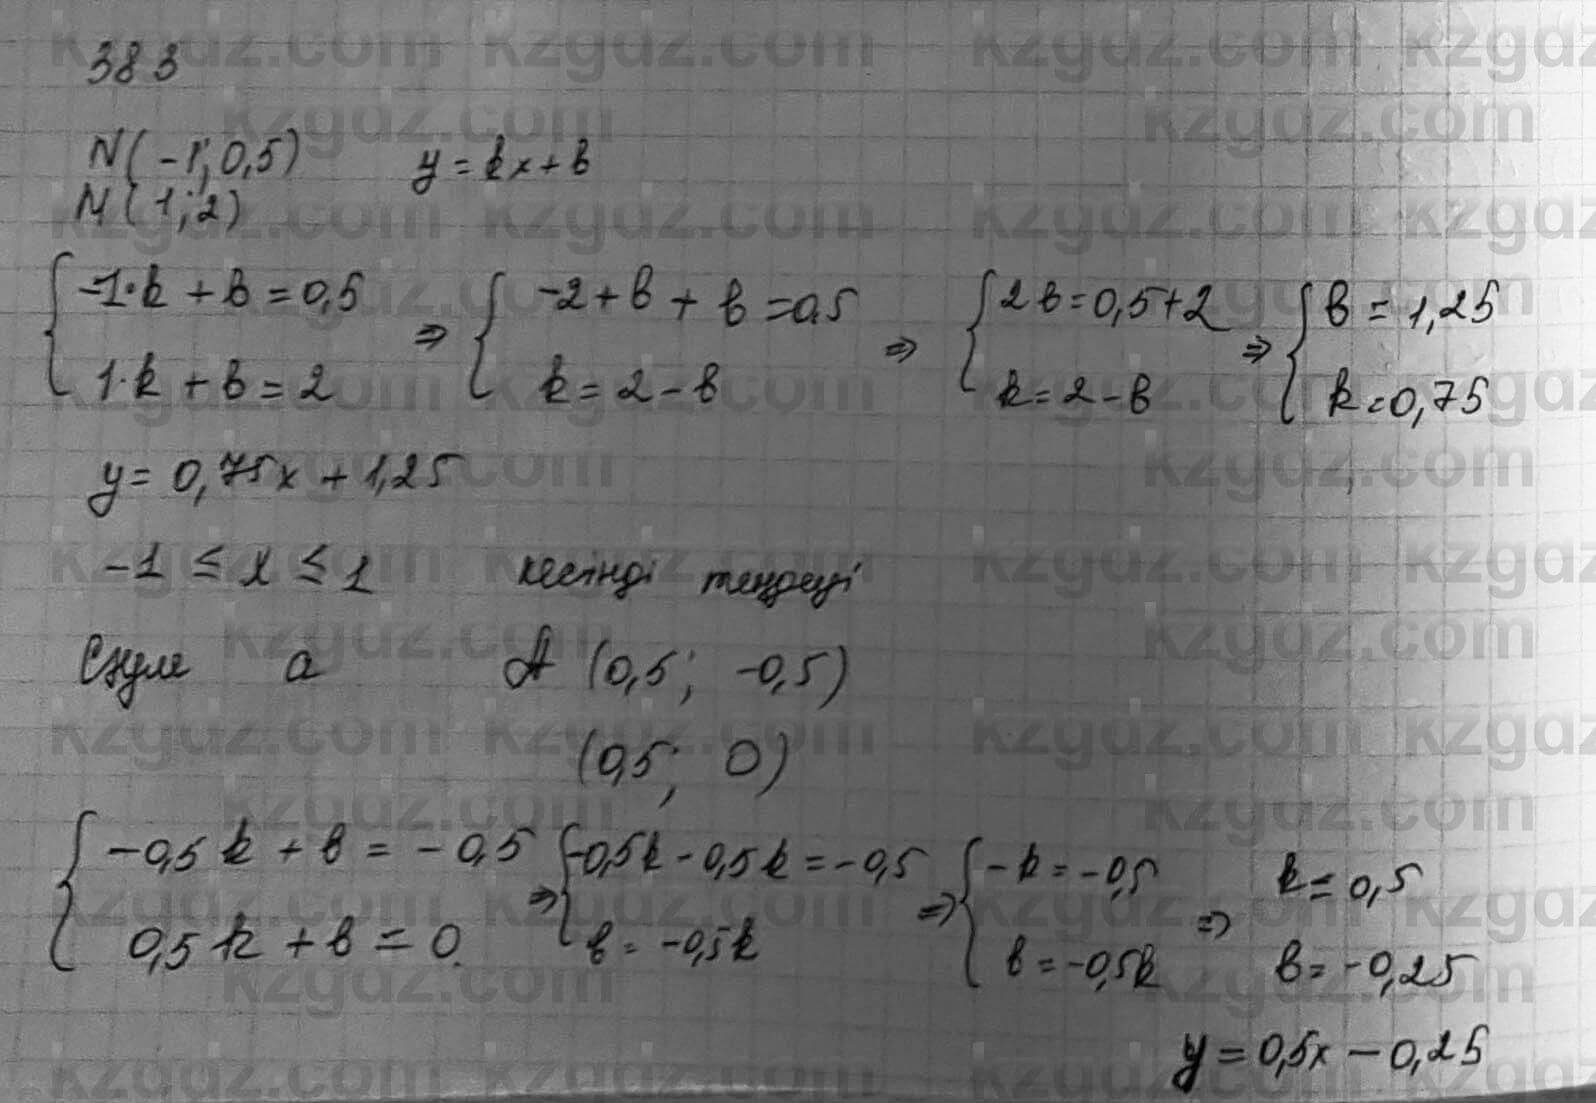 383
N(-1; 0,5) y = kx + b
M(1; 2)
{ -1·k + b = 0,5 ⇒ { -2 + b + b = 0,5 ⇒ { 2b = 0,5 + 2 ⇒ { b = 1,25
1·k + b = 2 k = 2 - b k = 2 - b k = 0,75
y = 0,75x + 1,25
-1 ≤ x ≤ 1 кесінді теңдеуі
Сәуле a A (0,5; -0,5)
(0,5; 0)
{ -0,5k + b = -0,5 ⇒ { -0,5k - 0,5k = -0,5 ⇒ { -k = -0,5 ⇒ k = 0,5
0,5k + b = 0. b = -0,5k b = -0,5k b = -0,25
y = 0,5x - 0,25
kzgdz.com